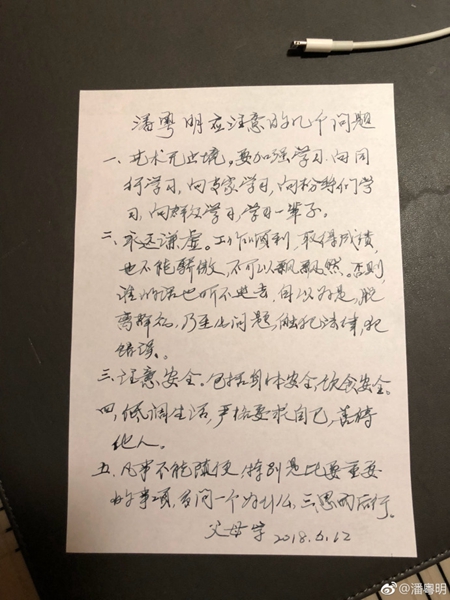 潘粤明应注意的几个问题
一、艺术无止境。要加强学习、向同
行学习、向专家学习、向粉丝们学
习、向群众学习、学习一辈子。
二、永远谦虚。工作顺利、取得成绩,
也不能骄傲,不可以飘飘然。否则,
谁的话也听不进去,自以为是,脱
离群众,乃至出问题,触犯法律,犯
错误。
三、注意安全。包括身体安全,饮食安全。
四、低调生活,严格要求自己,善待
他人。
五、凡事不能随便,特别是比较重要
的事项,多问一个为什么,三思而后行。
父母字 2018.6.12
@潘粤明